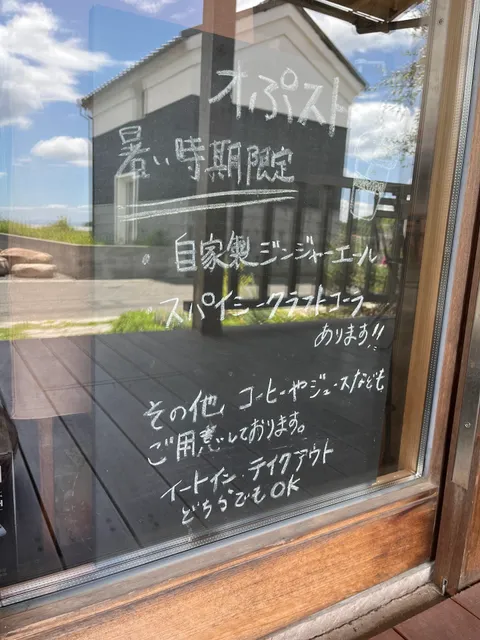 オぷスト
暑い時期限定
・自家製ジンジャーエール
・スパイシークラフトコーラ
あります!!
その他、コーヒーやジュースなども
ご用意しております。
イートイン・テイクアウト
どちらでもOK